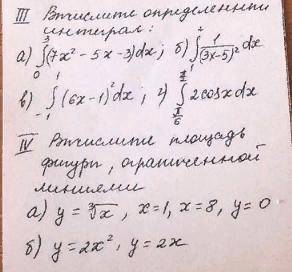 III Вычислите определенный
интеграл:
а) ∫₀³(7x² - 5x - 3)dx; б) ∫₁⁴ 1/(3x-5)² dx
в) ∫₋₁¹(6x-1)²dx; г) ∫ 2cosxdx
IV Вычислите площадь
фигуры, ограниченной
линиями
а) y = ∛x, x=1, x=8, y=0
б) y=2x², y=2x